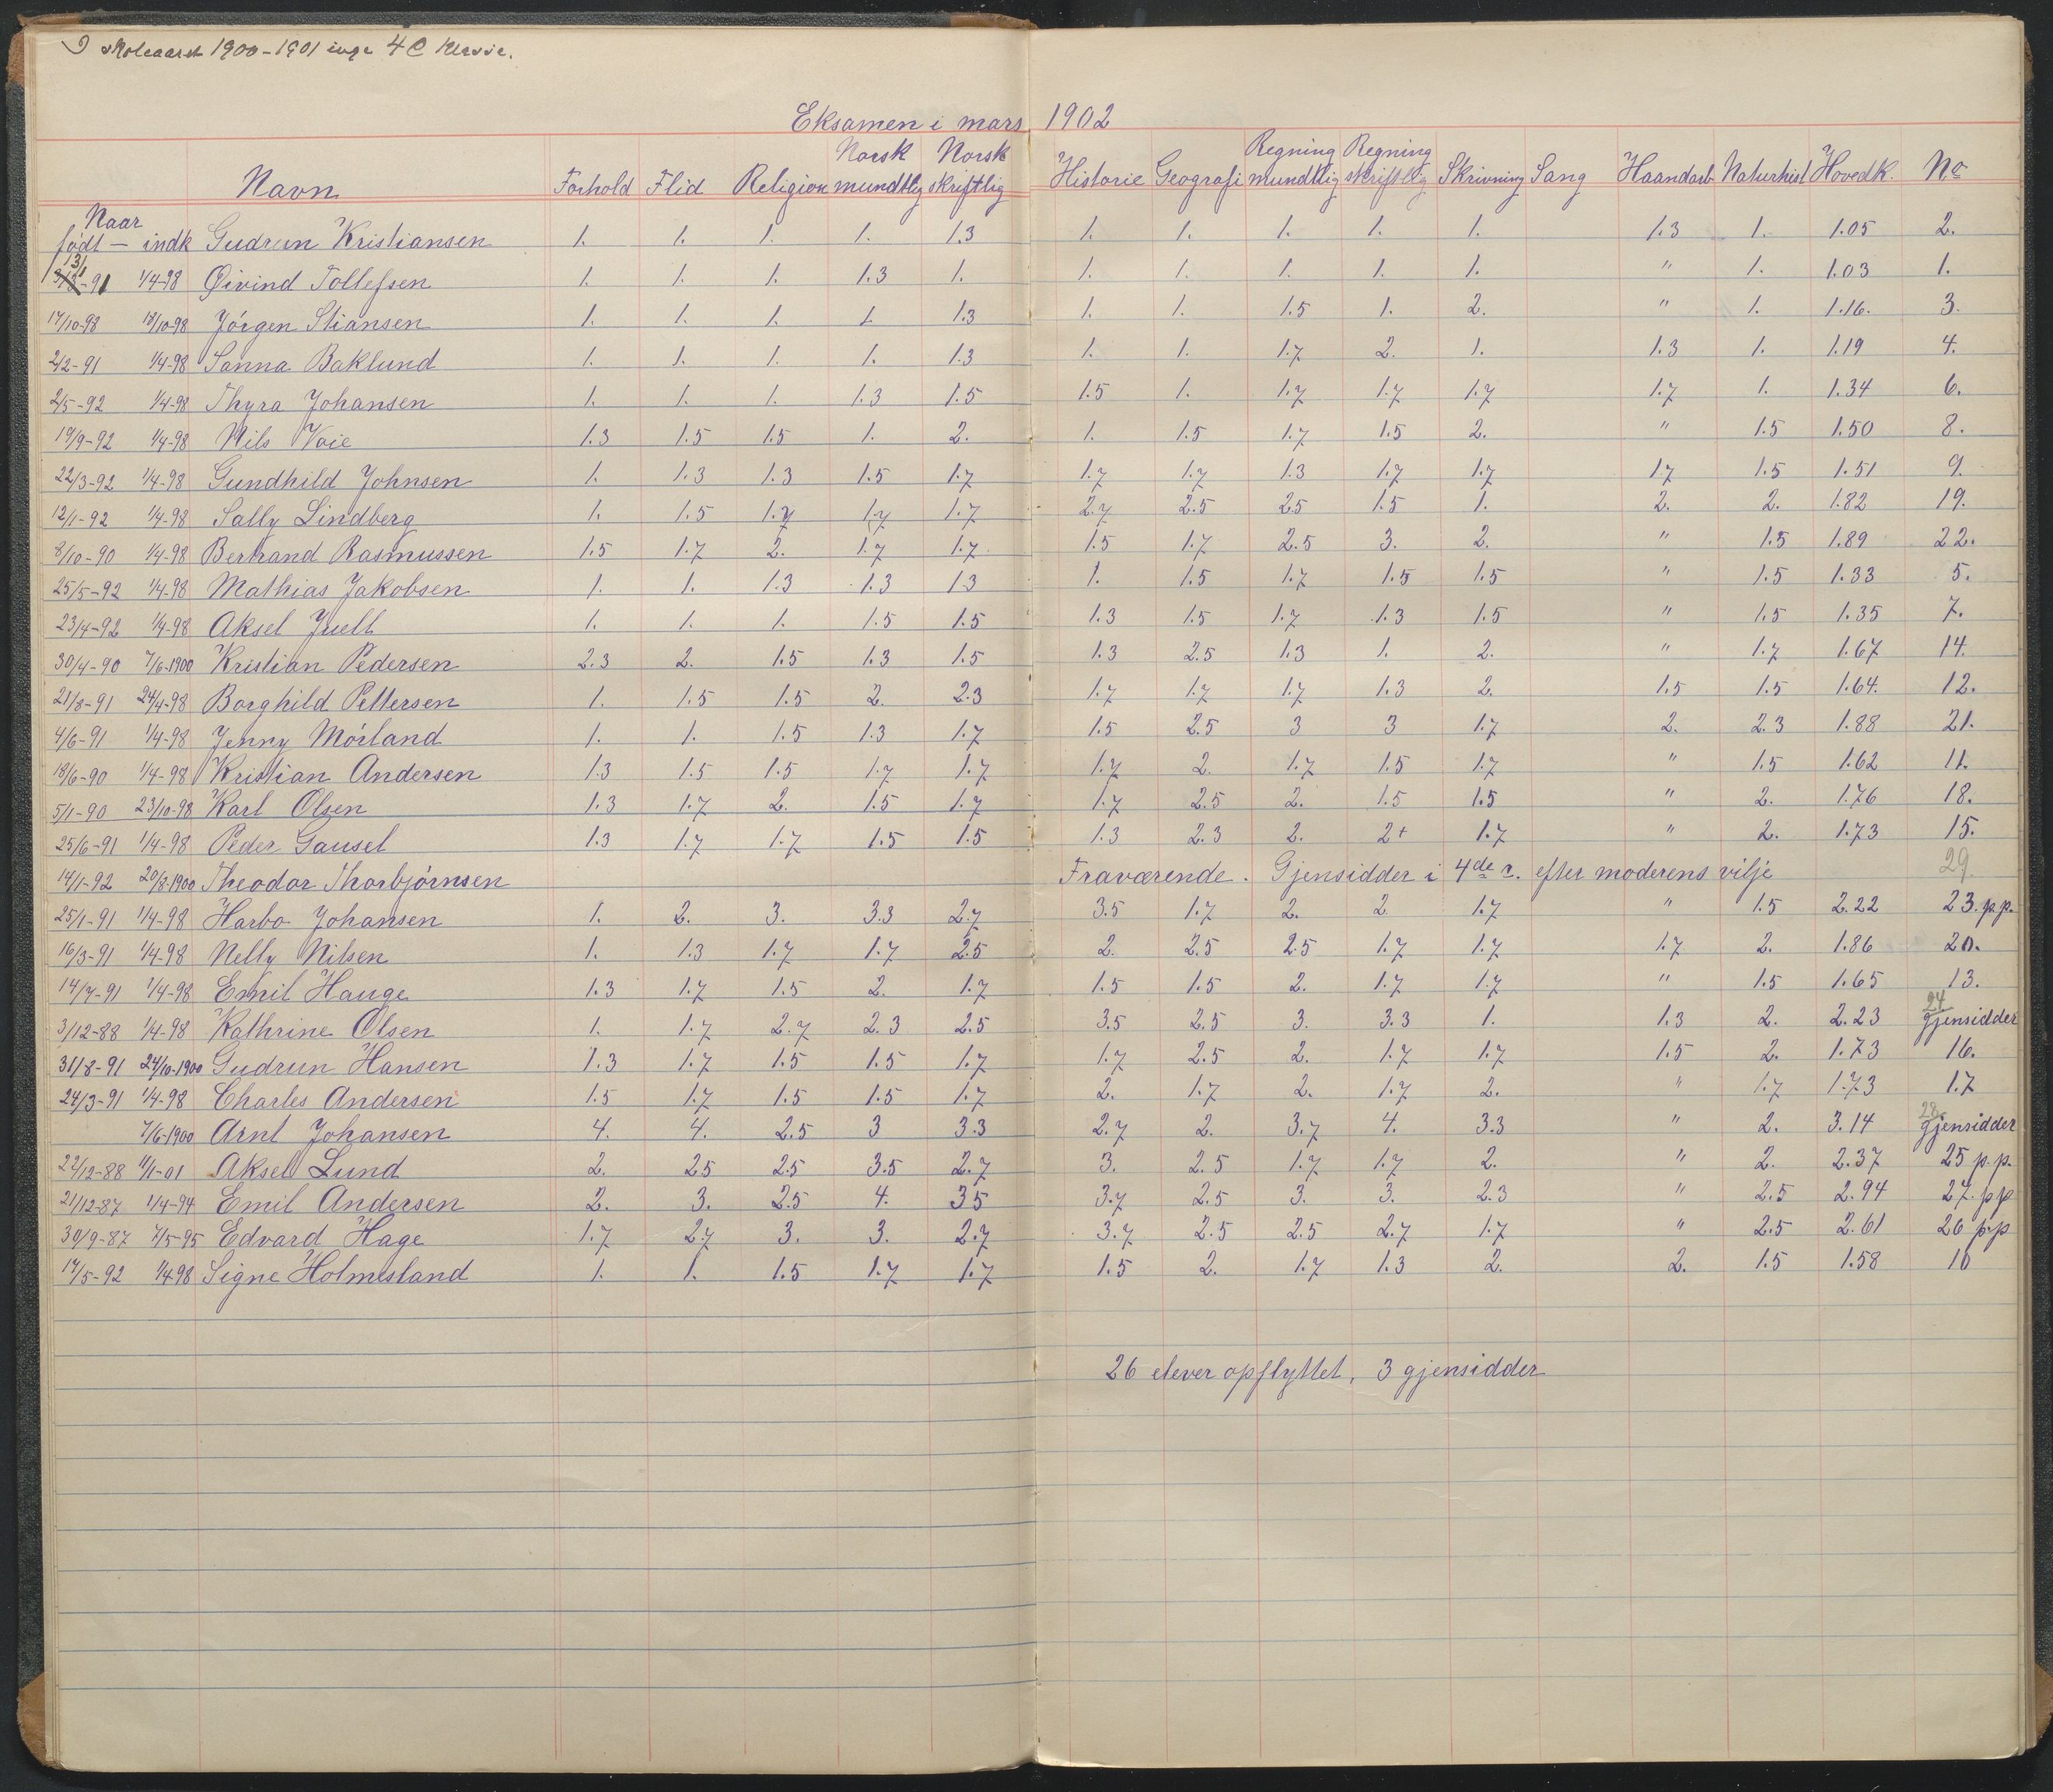 I skoleaaret 1900-1901 inge 4 C klasse.
Eksamen i mars 1902
Navn Forhold Flid Religion Norsk mundtlig Norsk skriftlig Historie Geografi Regning mundtlig Regning skriftlig Skrivning Sang Haandarb Naturhist Hovedk. No
Naar
født — indk Gudrun Kristiansen 1. 1. 1. 1. 1.3 1. 1. 1. 1. 1. 1.3 1. 1.05 2.
-91 1/4-98 Øivind Tollefsen 1. 1. 1. 1.3 1. 1. 1. 1. 1. 1. " 1. 1.03 1.
17/10-98 Jørgen Stiansen 1. 1. 1. 1. 1.3 1. 1. 1.5 1. 2. " 1. 1.16. 3.
2/2-91 1/4-98 Sanna Baklund 1. 1. 1. 1. 1.3 1. 1. 1.7 2. 1. 1.3 1. 1.19 4.
2/5-92 1/4-98 Thyra Johansen 1. 1. 1. 1.3 1.5 1.5 1. 1.7 1.7 1.7 1.7 1. 1.34 6.
19/9-92 1/4-98 Nils Voie 1.3 1.5 1.5 1. 2. 1. 1.5 1.7 1.5 2. " 1.5 1.50 8.
22/3-92 1/4-98 Gundhild Johnsen 1. 1.3 1.3 1.5 1.7 1.7 1.7 1.3 1.7 1.7 1.7 1.5 1.51 9.
12/1-92 1/4-98 Sally Lindberg 1. 1.5 1.7 1.7 1.7 2.7 2.5 2.5 1.5 1. 2. 2. 1.82 19.
8/10-90 1/4-98 Bertrand Rasmussen 1.5 1.7 2. 1.7 1.7 1.5 1.7 2.5 3. 2. " 1.5 1.89 22.
25/5-92 1/4-98 Mathias Jakobsen 1. 1. 1.3 1.3 1.3 1. 1.5 1.7 1.5 1.5 " 1.5 1.33 5.
23/4-92 1/4-98 Aksel Juell 1. 1. 1. 1.5 1.5 1.3 1.5 1.7 1.3 1.5 " 1.5 1.35 7.
30/4-90 7/6-1900 Kristian Pedersen 2.3 2. 1.5 1.3 1.5 1.3 2.5 1.3 1. 2. " 1.7 1.67 14.
21/8-91 24/4-98 Borghild Pettersen 1. 1.5 1.5 2. 2.3 1.7 1.7 1.7 1.3 2. 1.5 1.5 1.64. 12.
4/6-91 1/4-98 Jenny Mörland 1. 1. 1.5 1.3 1.7 1.5 2.5 3 3 1.7 2. 2.3 1.88 21.
18/6-90 1/4-98 Kristian Andersen 1.3 1.5 1.5 1.7 1.7 1.7 2. 1.7 1.5 1.7 " 1.5 1.62 11.
5/1-90 23/10-98 Karl Olsen 1.3 1.7 2. 1.5 1.7 1.7 2.5 2. 1.5 1.5 " 2. 1.76 18.
25/6-91 1/4-98 Peder Gausel 1.3 1.7 1.7 1.5 1.5 1.3 2.3 2. 2+ 1.7 " 2. 1.73 15.
14/1-92 20/8-1900 Theodor Thorbjørnsen Fraværende. Gjensidder i 4de c. efter moderens vilje 29
25/1-91 1/4-98 Harbo Johansen 1. 2. 3. 3.3 2.7 3.5 1.7 2. 2 1.7 " 1.5 2.22 23. p.p.
16/3-91 1/4-98 Nelly Nilsen 1. 1.3 1.7 1.7 2.5 2. 2.5 2.5 1.7 1.7 1.7 2. 1.86 20.
14/7-91 1/4-98 Emil Hauge 1.3 1.7 1.5 2. 1.7 1.5 1.5 2. 1.7 1.7 " 1.5 1.65 13.
3/12-88 1/4-98 Kathrine Olsen 1. 1.7 2.7 2.3 2.5 3.5 2.5 3. 3.3 1. 1.3 2. 2.23 24 gjensidder
31/8-91 24/10-1900 Gudrun Hansen 1.3 1.7 1.5 1.5 1.7 1.7 2.5 2. 1.7 1.7 1.5 2. 1.73 16.
24/3-91 1/4-98 Charles Andersen 1.5 1.7 1.5 1.5 1.7 2. 1.7 2. 1.7 2. " 1.7 1.73 17
7/6-1900 Arnt Johansen 4. 4. 2.5 3 3.3 2.7 2. 3.7 4. 3.3 " 2. 3.14 28. gjensidder
22/12-88 11/1-01 Aksel Lund 2. 2.5 2.5 3.5 2.7 3. 2.5 1.7 1.7 2. " 2. 2.37 25 p.p.
21/12-87 1/4-94 Emil Andersen 2. 3. 2.5 4. 3.5 3.7 2.5 3. 3. 2.3 " 2.5 2.94 27. pp
30/9-87 7/5-95 Edvard Hage 1.7 2.7 3. 3. 2.7 3.7 2.5 2.5 2.7 1.7 " 2.5 2.61 26 p.p
14/5-92 1/4 98 Signe Holmesland 1. 1. 1.5 1.7 1.7 1.5 2. 1.7 1.3 2. 2. 1.5 1.58 10
26 elever opflyttet, 3 gjensidder